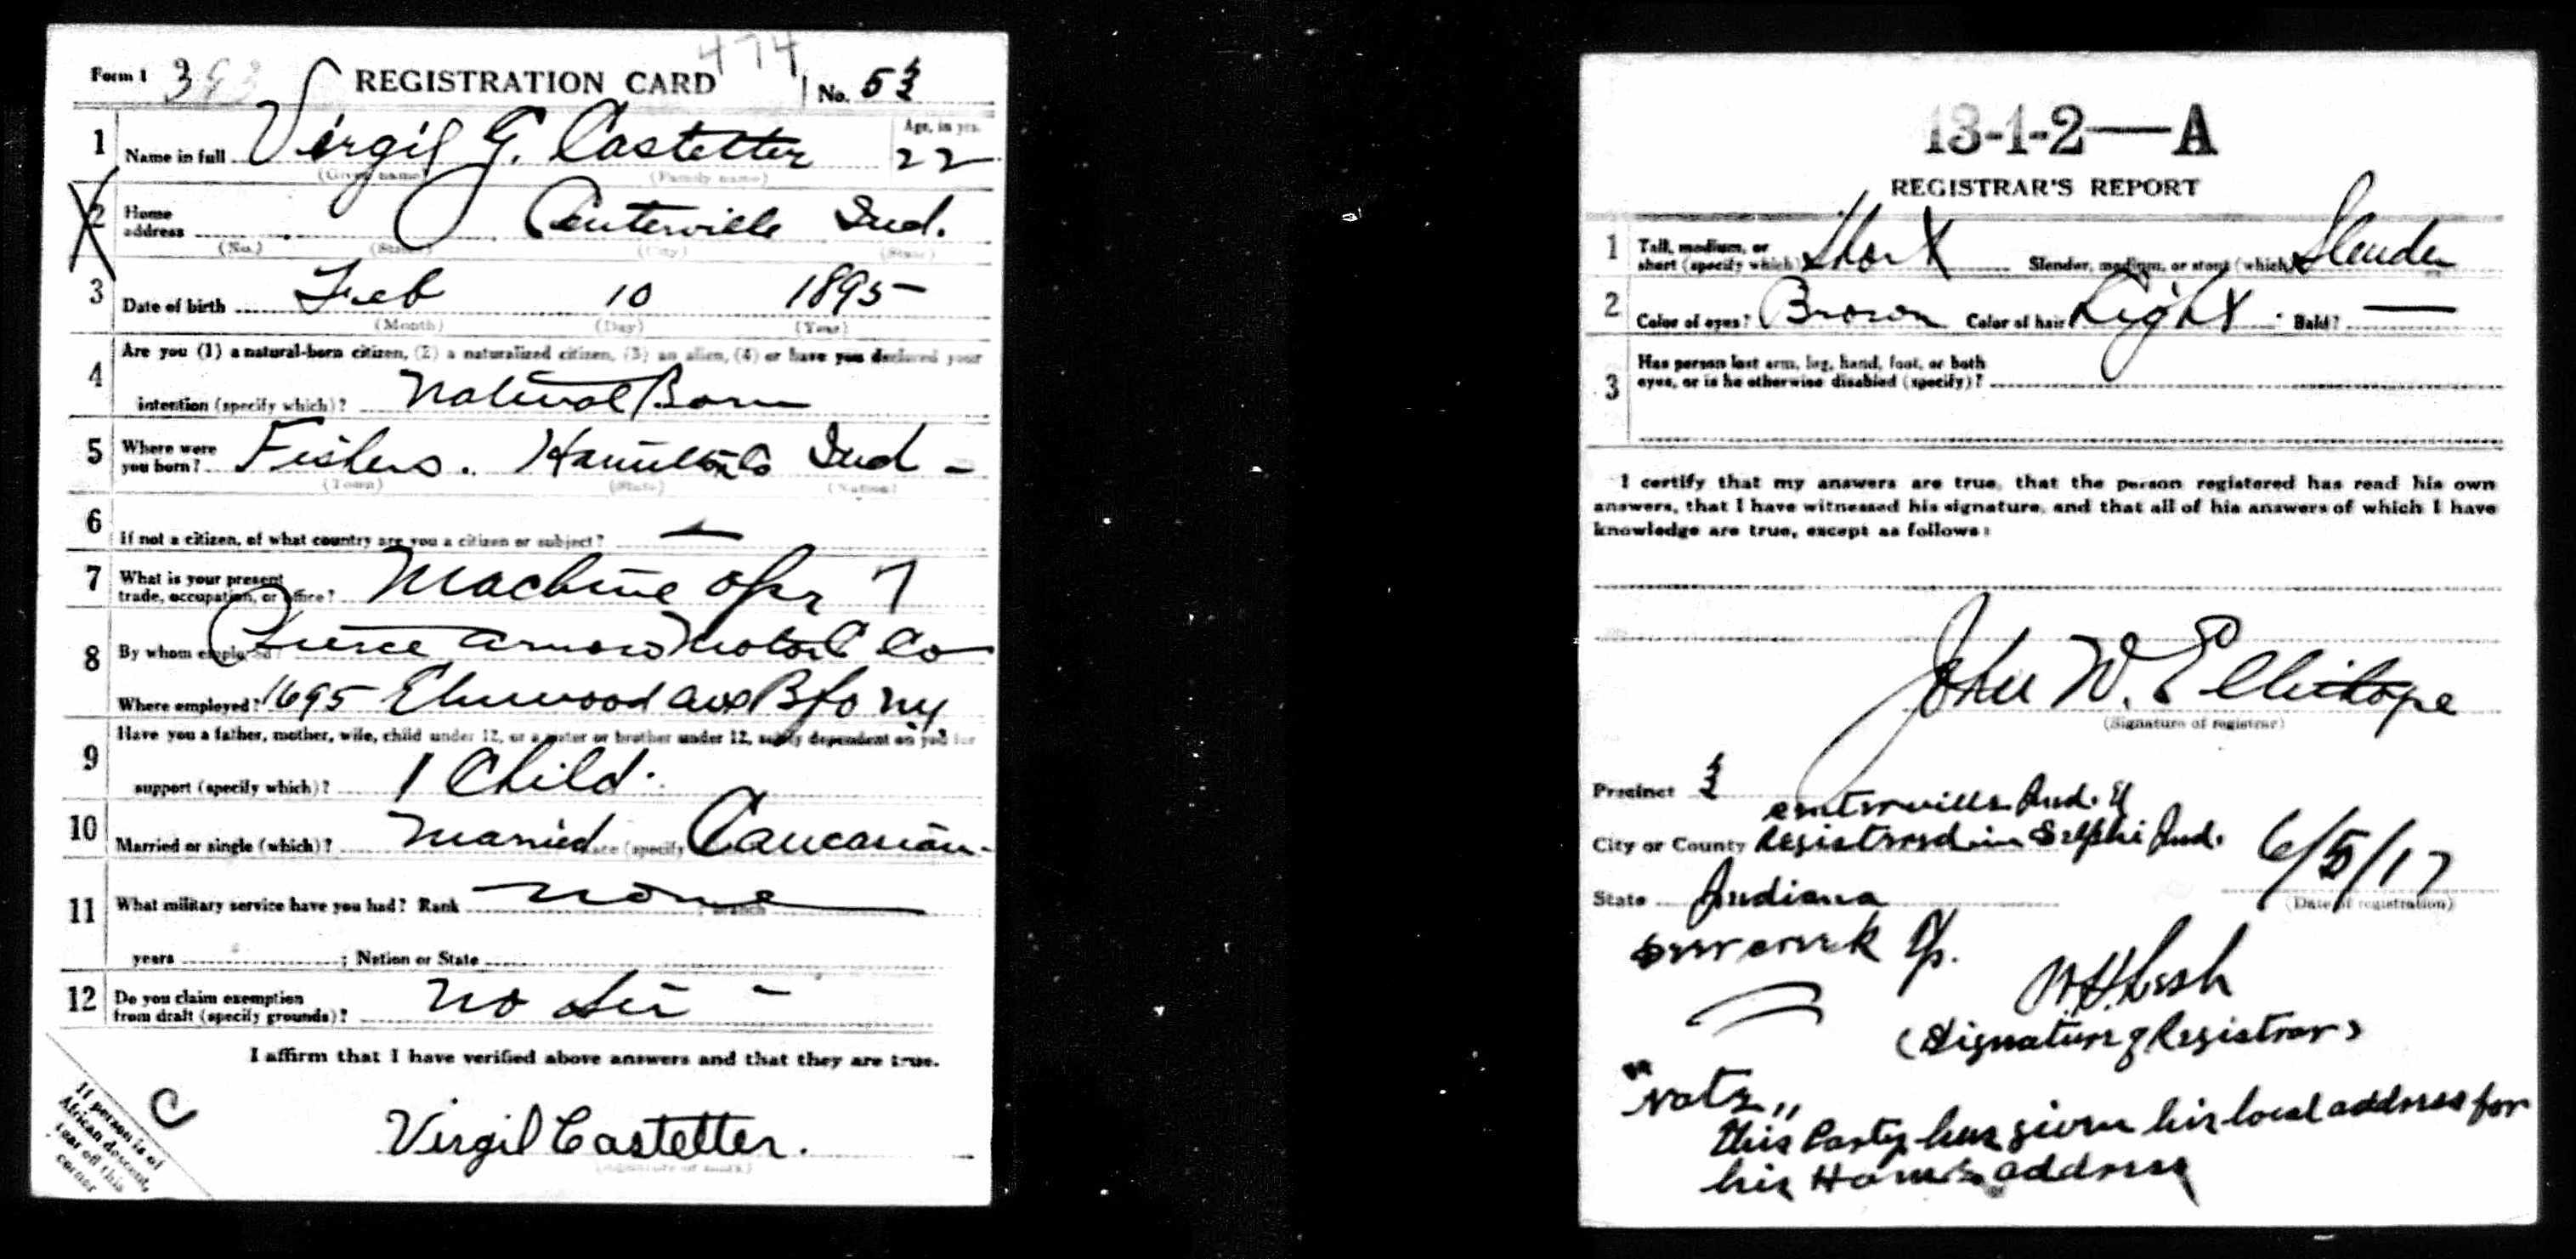 474
Form 1 REGISTRATION CARD No. 53
1 Name in full Virgil G. Castetter Age, in yrs. 22
(Given name) (Family name)
2 Home address Centerville Ind.
(No.) (Street) (City) (State)
3 Date of birth Feb 10 1895
(Month) (Day) (Year)
4 Are you (1) a natural-born citizen, (2) a naturalized citizen, (3) an alien, (4) or have you declared your
intention (specify which)? Natural Born
5 Where were you born? Fishers. Hamilton Co Ind -
(Town) (State) (Nation)
6 If not a citizen, of what country are you a citizen or subject? —
7 What is your present trade, occupation, or office? Machine opr 7
8 By whom employed? Pierce Arrow Motor Co
Where employed? 1695 Elmwood ave Bflo ny
9 Have you a father, mother, wife, child under 12, or a sister or brother under 12, solely dependent on you for
support (specify which)? 1 Child.
10 Married or single (which)? Married Race (specify Caucasian.
11 What military service have you had? Rank none ; branch
years ; Nation or State
12 Do you claim exemption from draft (specify grounds)? No Sir -
I affirm that I have verified above answers and that they are true.
If person is of
African descent,
tear off this
corner
C
Virgil Castetter.
(Signature or mark)
13-1-2—A
REGISTRAR'S REPORT
1 Tall, medium, or short (specify which)? Short Slender, medium, or stout (which)? Slender
2 Color of eyes? Brown Color of hair? Light Bald? —
3 Has person lost arm, leg, hand, foot, or both
eyes, or is he otherwise disabled (specify)?
I certify that my answers are true, that the person registered has read his own
answers, that I have witnessed his signature, and that all of his answers of which I have
knowledge are true, except as follows:
John W.
(Signature of registrar)
Precinct 3
City or County Registered in Delphi Ind. 6/5/17
State Indiana
(Date of registration)
Deer Creek Tp.
(Signature of Registrar)
"Note"
This Party has given his local address for
his Home address